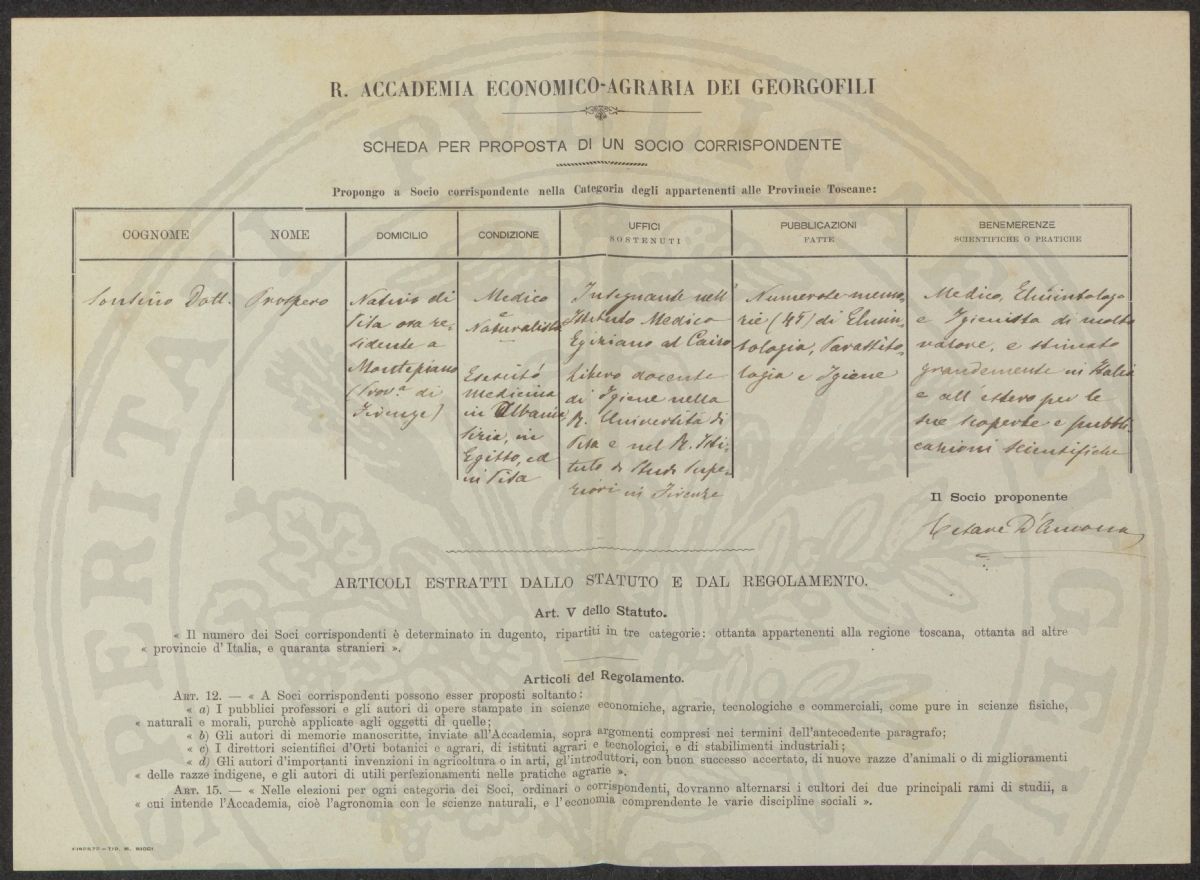 R. ACCADEMIA ECONOMICO-AGRARIA DEI GEORGOFILI
SCHEDA PER PROPOSTA DI UN SOCIO CORRISPONDENTE
Propongo a Socio corrispondente nella Categoria degli appartenenti alle Provincie Toscane:
COGNOME
NOME
DOMICILIO
CONDIZIONE
UFFICI
SOSTENUTI
PUBBLICAZIONI
FATTE
BENEMERENZE
SCIENTIFICHE O PRATICHE
Sonsino Dott.
Prospero
Nativo di
Pisa ora re-
sidente a
Montepiano
(Prov.a di
Firenze)
Medico
e
Naturalista
Esercitò
medicina
in Albania
Siria, in
Egitto, ed
in Pisa
Insegnante nell'
Istituto Medico
Egiziano al Cairo
Libero docente
di Igiene nella
R. Università di
Pisa e nel R. Isti-
tuto di Studi Supe-
riori in Firenze
Numerose memo-
rie (45) di Elmin-
tologia, Parassito-
logia e Igiene
Medico, Elmintologo
e Igienista di molto
valore, e stimato
grandemente in Italia
e all'estero per le
sue scoperte e pubbli-
cazioni scientifiche
Il Socio proponente
Cesare D'Ancona
ARTICOLI ESTRATTI DALLO STATUTO E DAL REGOLAMENTO.
Art. V dello Statuto.
« Il numero dei Soci corrispondenti è determinato in dugento, ripartiti in tre categorie: ottanta appartenenti alla regione toscana, ottanta ad altre
« provincie d'Italia, e quaranta stranieri ».
Articoli del Regolamento.
ART. 12. — « A Soci corrispondenti possono esser proposti soltanto:
« a) I pubblici professori e gli autori di opere stampate in scienze economiche, agrarie, tecnologiche e commerciali, come pure in scienze fisiche,
« naturali e morali, purchè applicate agli oggetti di quelle;
« b) Gli autori di memorie manoscritte, inviate all'Accademia, sopra argomenti compresi nei termini dell'antecedente paragrafo;
« c) I direttori scientifici d'Orti botanici e agrari, di istituti agrari e tecnologici, e di stabilimenti industriali;
« d) Gli autori d'importanti invenzioni in agricoltura o in arti, gl'introduttori, con buon successo accertato, di nuove razze d'animali o di miglioramenti
« delle razze indigene, e gli autori di utili perfezionamenti nelle pratiche agrarie ».
ART. 15. — « Nelle elezioni per ogni categoria dei Soci, ordinari o corrispondenti, dovranno alternarsi i cultori dei due principali rami di studii, a
« cui intende l'Accademia, cioè l'agronomia con le scienze naturali, e l'economia comprendente le varie discipline sociali ».
FIRENZE—TIP. M. RICCI